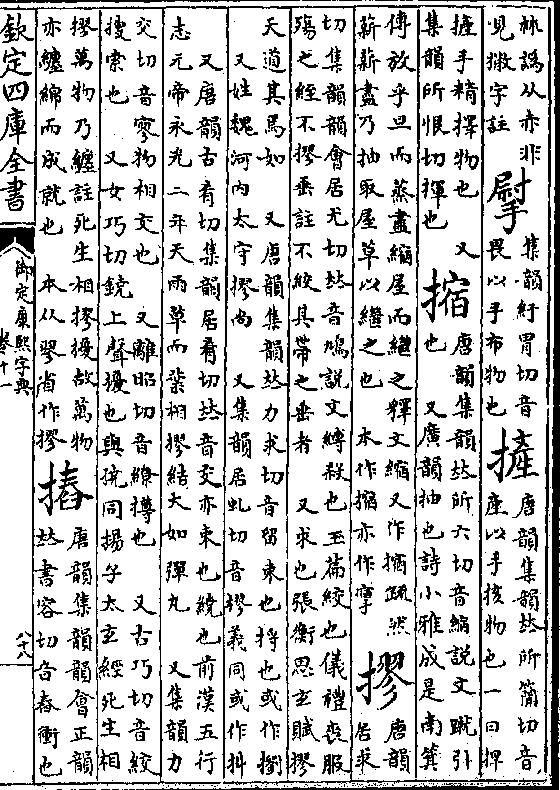 林譌从亦非
見撇字註 㨤 集韻紆胃切音
畏以手布物也 摌 唐韻集韻𠀤所簡切音
產以手挍物也一曰捍
攡手精擇物也 又
集韻所恨切揮也 摍 唐韻集韻𠀤所六切音縮說文蹴引
也 又廣韻抽也詩小雅成是南箕
傳放乎旦而蒸盡縮屋而繼之釋文縮又作摍疏然
薪薪盡乃抽取屋草以繼之也 本作摍亦作摩 摎 唐韻
居求
切集韻韻會居尤切𠀤音鳩說文縛殺也玉篇絞也儀禮喪服
殤之絰不摎垂註不絞其帶之垂者 又求也張衡思玄賦摎
天道其焉如 又唐韻集韻𠀤力求切音留束也捋也或作㨨
又姓魏河內太守摎尚 又集韻居虬切音樛義同或作抖
又唐韻古肴切集韻居肴切𠀤音交亦束也繞也前漢五行
志元帝永光二年天雨草而葉相摎結大如彈丸 又集韻力
交切音寥物相交也 又離昭切音繚摶也 又古巧切音絞
搜索也 又女巧切鐃上聲擾也與撓同揚子太玄經死生相
摎萬物乃纏註死生相摎擾故萬物
亦纏綿而成就也 本从翏省作摎 摏 唐韻集韻韻會正韻
𠀤書容切音舂衝也
欽定四庫全書
御定康熙字典
卷十一
八十八